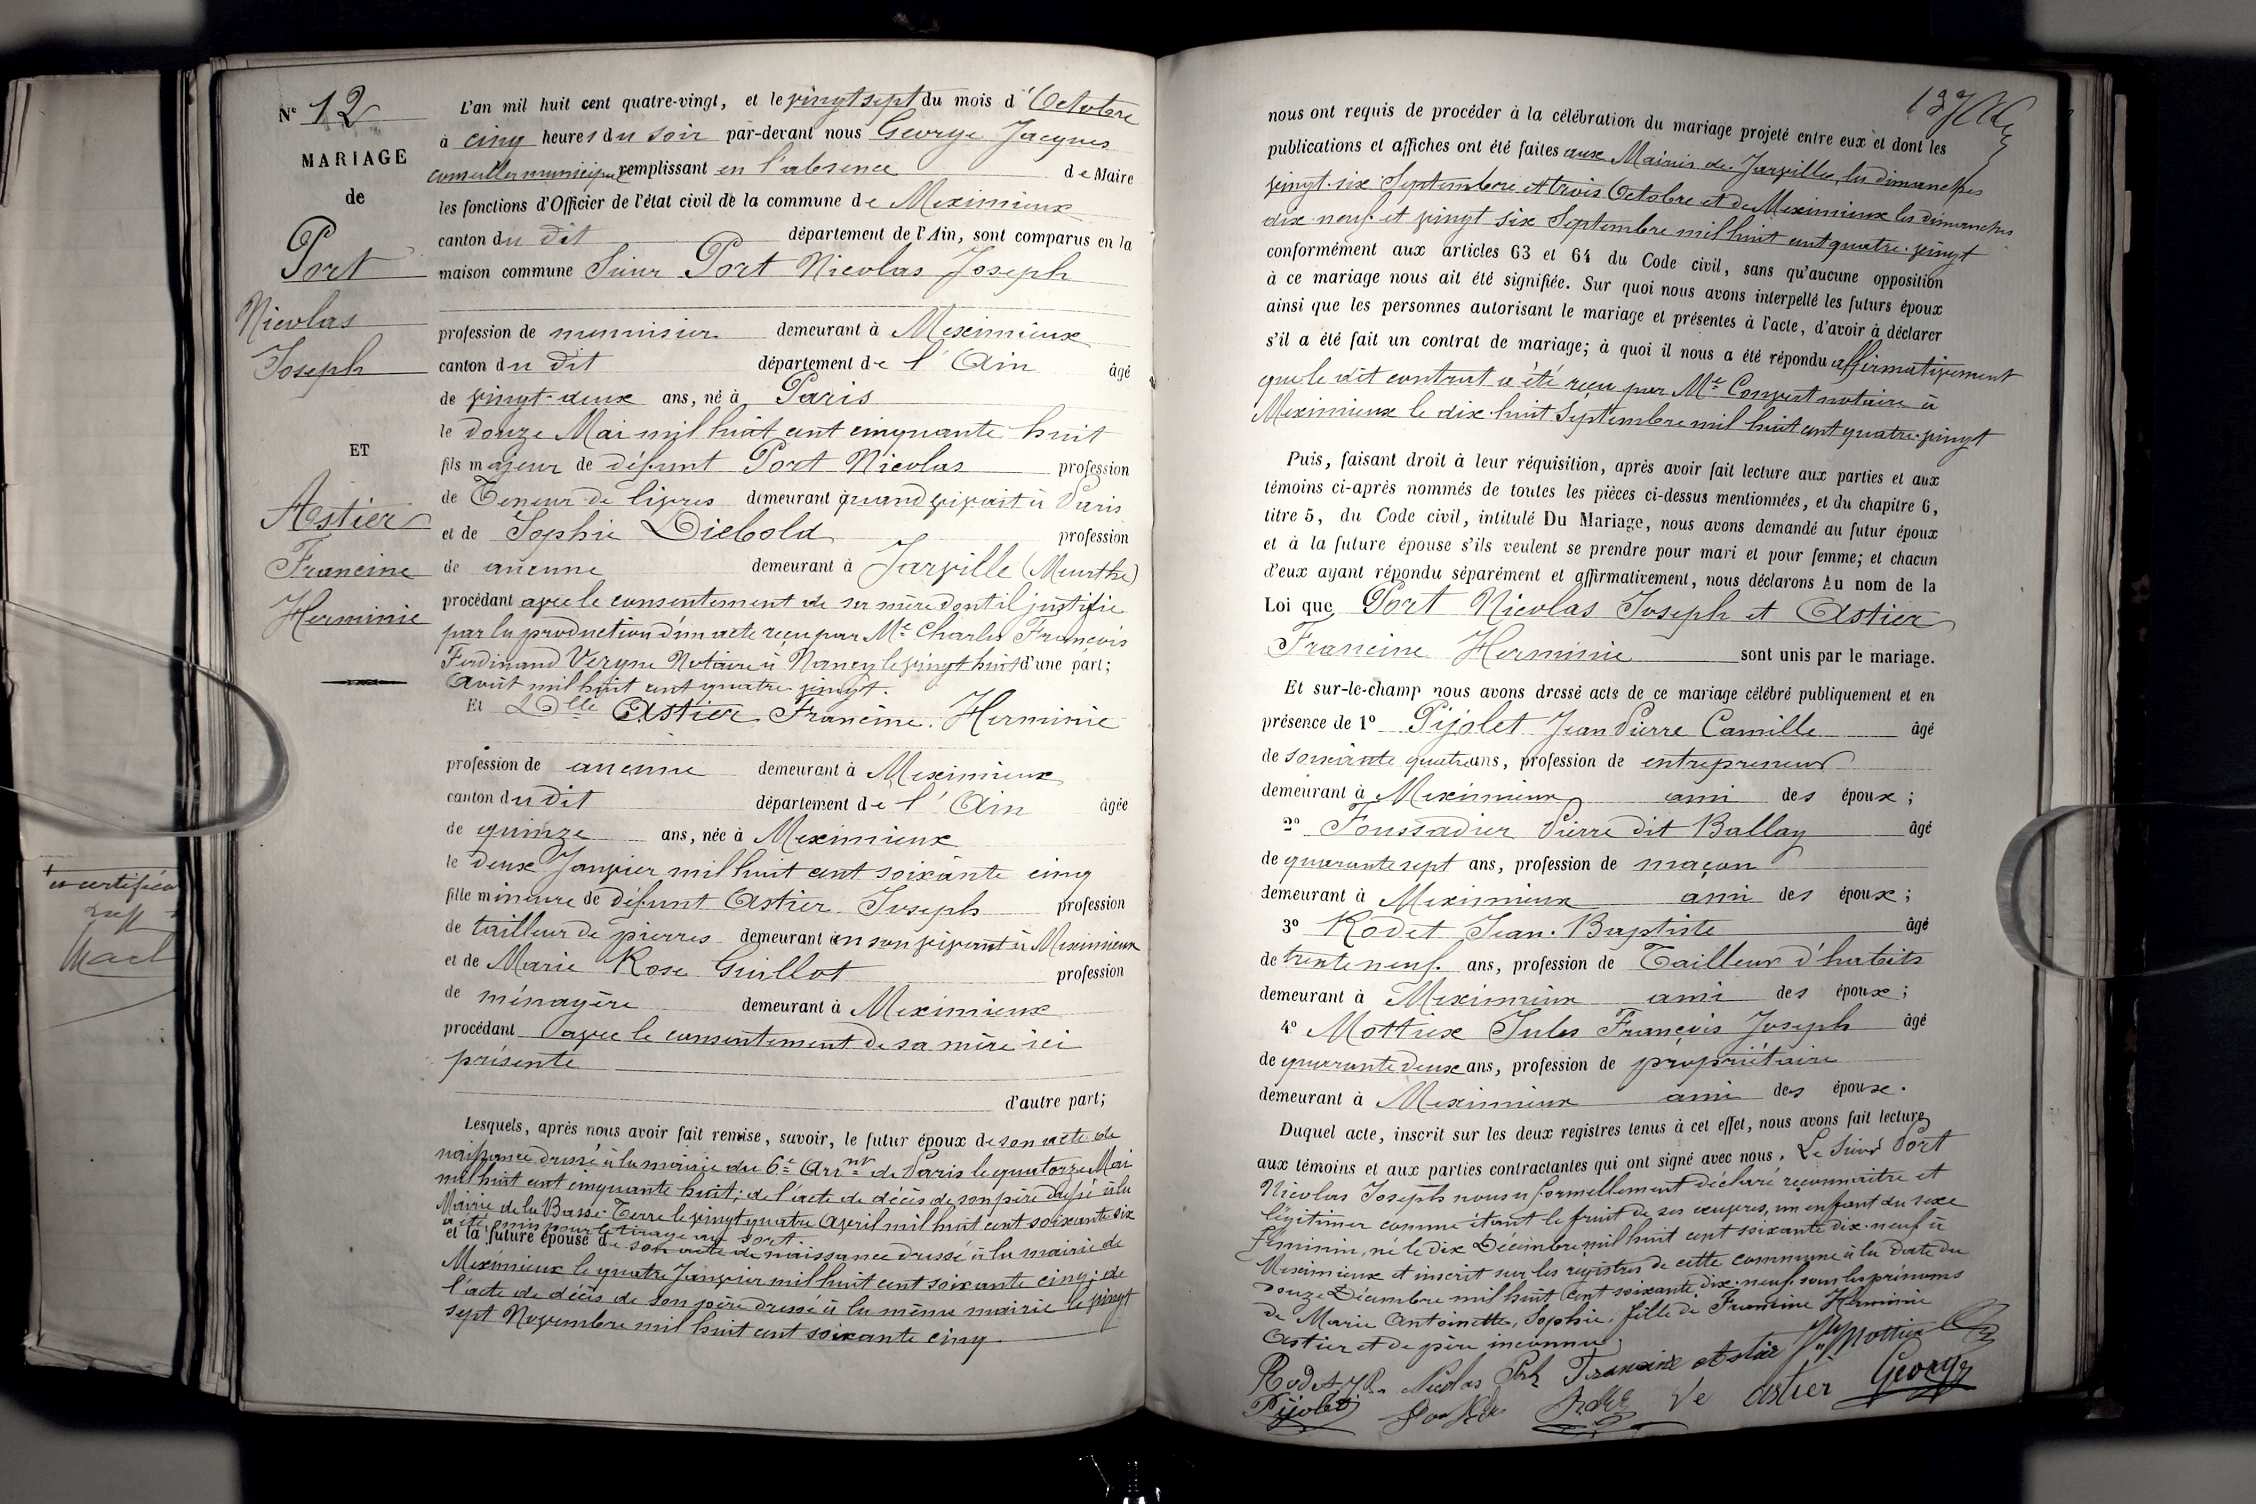 N° 12
MARIAGE
de
Port
Nicolas
Joseph
ET
Astier
Francine
Herminie
L'an mil huit cent quatre-vingt, et le vingt sept du mois d'Octobre
à cinq heures du soir par-devant nous George Jacques
conseiller municipal remplissant en l'absence de Maire
les fonctions d'Officier de l'état civil de la commune de Meximieux
canton du dit département de l'Ain, sont comparus en la
maison commune Sieur Port Nicolas Joseph
profession de menuisier demeurant à Meximieux
canton du dit département de l'Ain âgé
de vingt-deux ans, né à Paris
le douze Mai mil huit cent cinquante huit
fils majeur de défunt Port Nicolas profession
de Teneur de livres demeurant quand vivait à Paris
et de Sophie Diebold profession
de aucune demeurant à Jarville (Meurthe)
procédant avec le consentement de sa mère dont il justifie
par la production d'un acte reçu par Me Charles François
Ferdinand Vergne Notaire à Nancy le vingt huit d'une part;
Août mil huit cent quatre vingt.
Et Dlle Astier Francine Herminie
profession de aucune demeurant à Meximieux
canton du dit département de l'Ain âgée
de quinze ans, née à Meximieux
le deux Janvier mil huit cent soixante cinq
fille mineure de défunt Astier Joseph profession
de tailleur de pierres demeurant en son vivant à Meximieux
et de Marie Rose Guillot profession
de ménagère demeurant à Meximieux
procédant avec le consentement de sa mère ici
présente
d'autre part;
Lesquels, après nous avoir fait remise, savoir, le futur époux de son acte de
naissance dressé à la mairie du 6e Arrnt de Paris le quatorze Mai
mil huit cent cinquante huit; de l'acte de décès de son père dressé à la
Mairie de la Basse-Terre le vingt quatre Avril mil huit cent soixante six
pour le tirage au sort.
et la future épouse de son acte de naissance dressé à la mairie de
Meximieux le quatre Janvier mil huit cent soixante cinq; de
l'acte de décès de son père dressé à la même mairie le vingt
sept Novembre mil huit cent soixante cinq
nous ont requis de procéder à la célébration du mariage projeté entre eux et dont les
publications et affiches ont été faites aux Mairies de Jarville, les dimanches
vingt-six Septembre et trois Octobre et de Meximieux les dimanches
dix-neuf et vingt six Septembre mil huit cent quatre-vingt
conformément aux articles 63 et 64 du Code civil, sans qu'aucune opposition
à ce mariage nous ait été signifiée. Sur quoi nous avons interpellé les futurs époux
ainsi que les personnes autorisant le mariage et présentes à l'acte, d'avoir à déclarer
s'il a été fait un contrat de mariage; à quoi il nous a été répondu affirmativement
que le dit contrat a été reçu par Me Convert notaire à
Meximieux le dix-huit Septembre mil huit cent quatre-vingt
Puis, faisant droit à leur réquisition, après avoir fait lecture aux parties et aux
témoins ci-après nommés de toutes les pièces ci-dessus mentionnées, et du chapitre 6,
titre 5, du Code civil, intitulé Du Mariage, nous avons demandé au futur époux
et à la future épouse s'ils veulent se prendre pour mari et pour femme; et chacun
d'eux ayant répondu séparément et affirmativement, nous déclarons Au nom de la
Loi que Port Nicolas Joseph et Astier
Francine Herminie sont unis par le mariage.
Et sur-le-champ nous avons dressé acte de ce mariage célébré publiquement et en
présence de 1° Pijolet Jean Pierre Camille âgé
de soixante quatre ans, profession de entrepreneur
demeurant à Meximieux ami des époux;
2° Foussadier Pierre dit Ballay âgé
de quarante sept ans, profession de maçon
demeurant à Meximieux ami des époux;
3° Rodet Jean-Baptiste âgé
de trente neuf ans, profession de Tailleur d'habits
demeurant à Meximieux ami des époux;
4° Mottiex Jules François Joseph âgé
de quarante deux ans, profession de propriétaire
demeurant à Meximieux ami des époux.
Duquel acte, inscrit sur les deux registres tenus à cet effet, nous avons fait lecture
aux témoins et aux parties contractantes qui ont signé avec nous. Le Sieur Port
Nicolas Joseph nous a formellement déclaré reconnaître et
légitimer comme étant le fruit de ses œuvres, un enfant du sexe
féminin, né le dix Décembre mil huit cent soixante dix-neuf à
Meximieux et inscrit sur les registres de cette commune à la date du
douze Décembre mil huit cent soixante dix-neuf sous les prénoms
de Marie Antoinette, Sophie, fille de Francine Herminie
Astier et de père inconnu
Rodet Nicolas Port Francine Astier Mottiex
Pijolet Ve Astier George